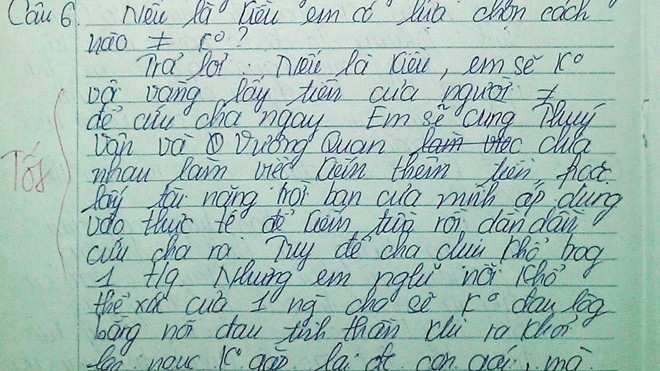 Câu 6. Nếu là Kiều em có lựa chọn cách
nào ≠ K° ?
Trả lời : Nếu là Kiều, em sẽ K°
vội vàng lấy tiền của người ≠
để cứu cha ngay. Em sẽ cùng Thúy
Vân và Vương Quan làm việc chia
nhau làm việc kiếm thêm tiền hoặc
lấy tài năng trời ban của mình áp dụng
vào thực tế để kiếm tiền rồi dần dần
cứu cha ra. Tuy để cha chịu khổ trog
1 t/g. Nhưng em nghĩ nỗi khổ
thể xác của 1 ng cha sẽ K° đau lòg
bằng nỗi đau tinh thần khi ra khỏi
lao ngục K° gặp lại đc con gái, mà
Tốt